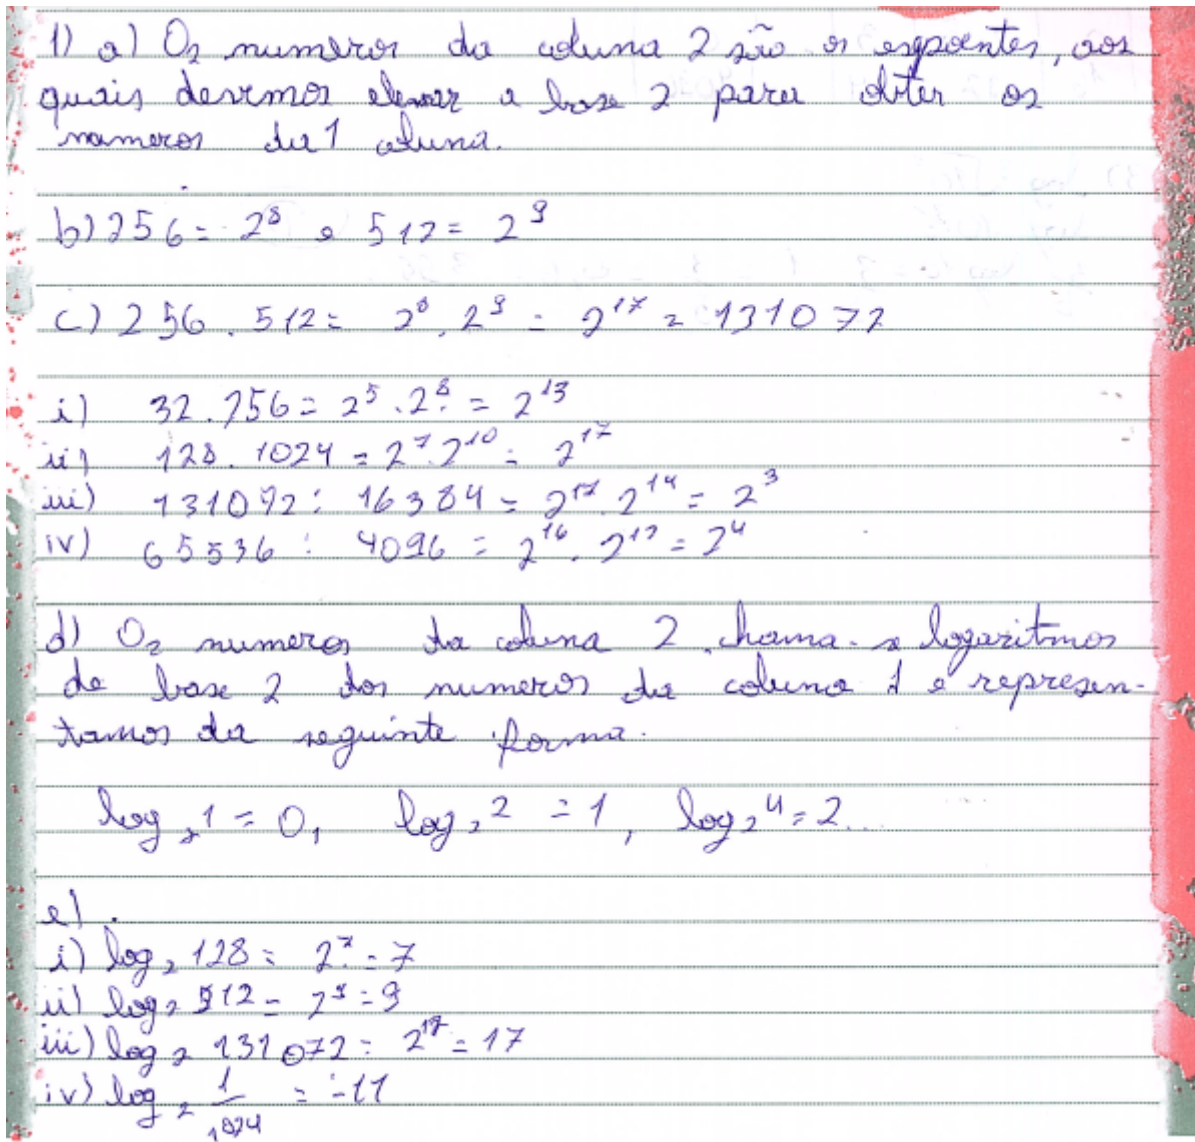 1) a) Os numeros da coluna 2 são os espoentes, aos
quais devemos elevar a base 2 para obter os
numeros da 1 coluna.
b) 256 = 2⁸ e 512 = 2⁹
c) 256 . 512 = 2⁸ . 2⁹ = 2¹⁷ = 131072
i) 32 . 256 = 2⁵ . 2⁸ = 2¹³
ii) 128 . 1024 = 2⁷ . 2¹⁰ = 2¹⁷
iii) 131072 : 16384 = 2¹⁷ . 2¹⁴ = 2³
iv) 65536 : 4096 = 2¹⁶ . 2¹² = 2⁴
d) Os numeros da coluna 2 chama-se logaritmos
de base 2 dos numeros da coluna 1 e represen-
tamos da seguinte forma.
log₂ 1 = 0, log₂ 2 = 1, log₂ 4 = 2...
e)
i) log₂ 128 = 2⁷ = 7
ii) log₂ 512 = 2⁹ = 9
iii) log₂ 131072 = 2¹⁷ = 17
iv) log₂ 1/1024 = -11